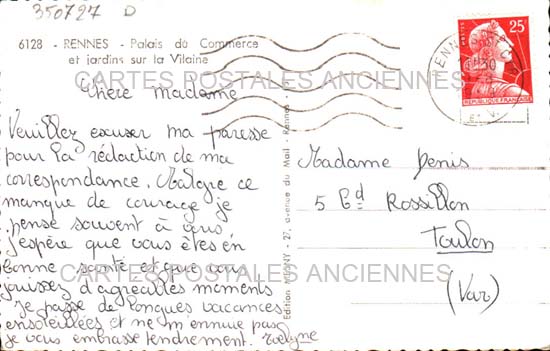 350727 D
6128 - RENNES - Palais du Commerce
et jardins sur la Vilaine
CARTES POSTALES ANCIENNES
Chère Madame
Veuillez excuser ma paresse
pour la rédaction de ma
correspondance. Malgre ce
manque de courage je
pense souvent à vous
j'espère que vous êtes en
bonne santé et que vous
jouissez d'agréables moments
Je passe de longues vacances
ensoleillées et ne m'ennuie pas
je vous embrasse tendrement.
Edition MIGNY - 27, avenue du Mail - Rennes
25F
POSTES
REPUBLIQUE FRANÇAISE
Madame Denis
5 Bd Rossillon
Toulon
(Var)
CARTES POSTALES ANCIENNES